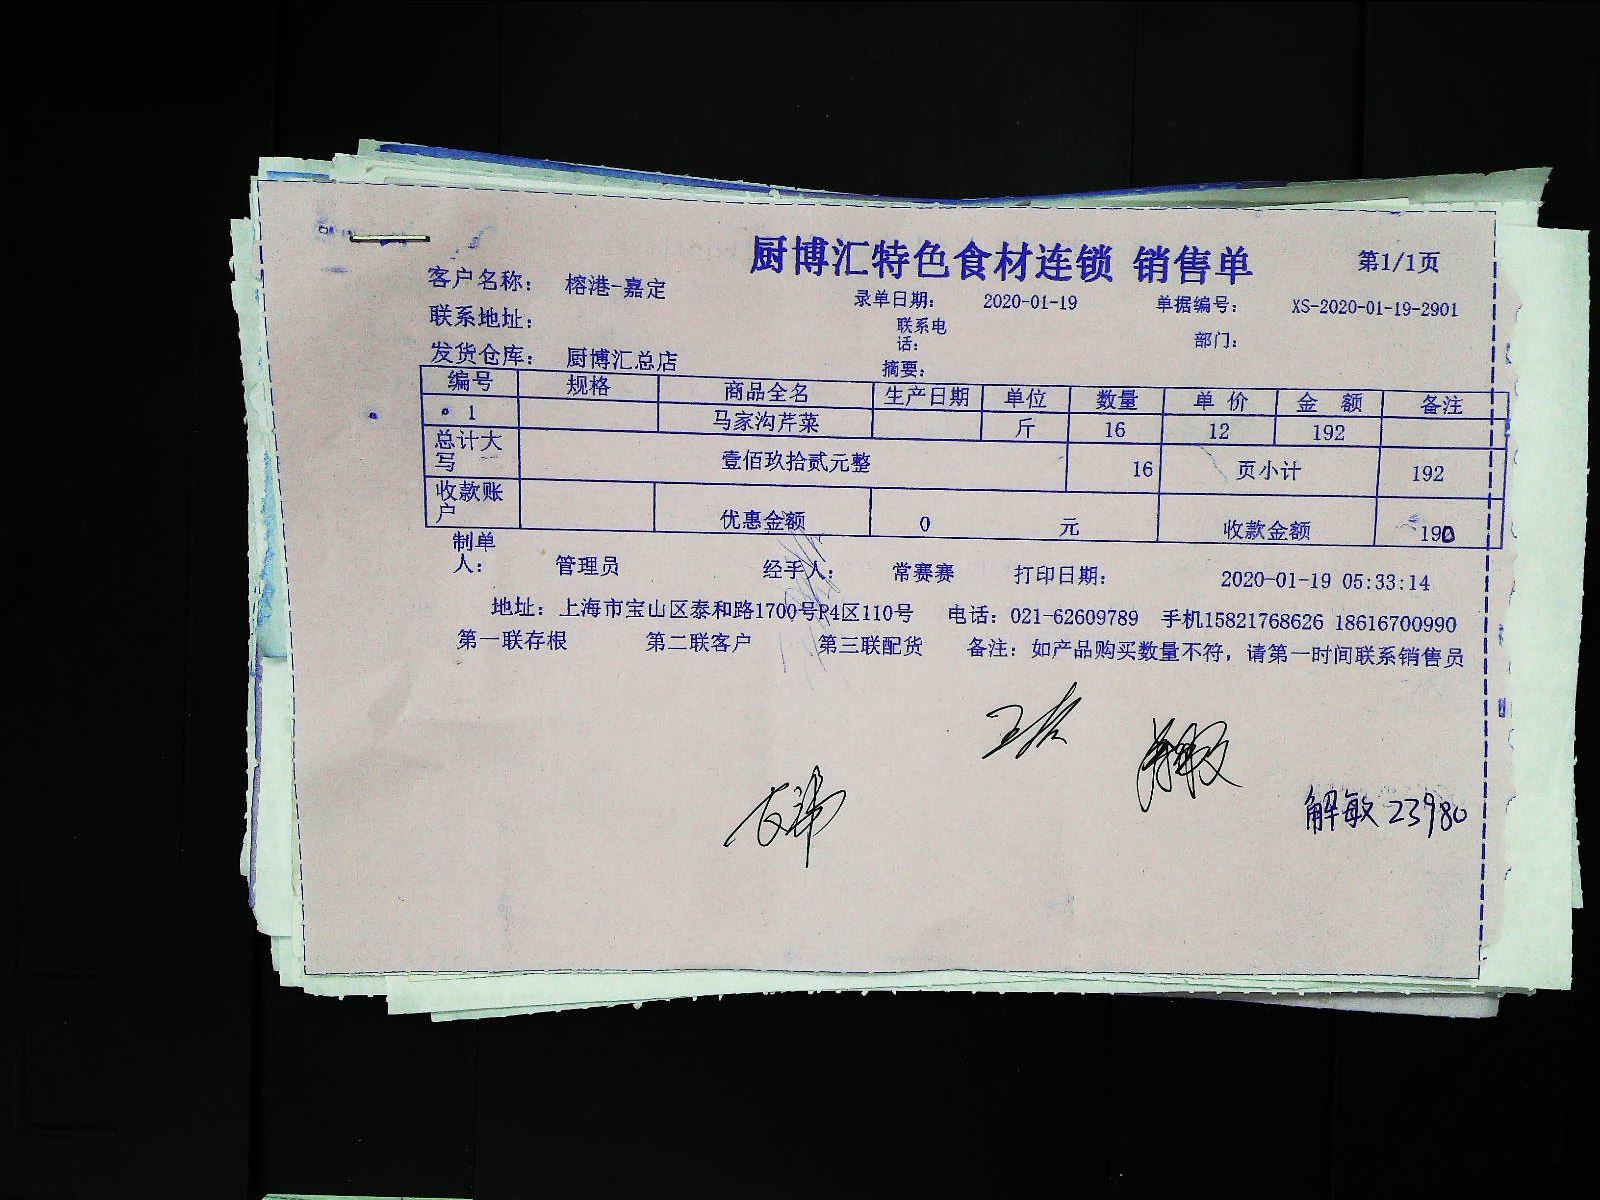 厨博汇特色食材连锁 销售单 第1/1页
客户名称： 榕港-嘉定 录单日期： 2020-01-19 单据编号： XS-2020-01-19-2901
联系地址： 联系电话： 部门：
发货仓库： 厨博汇总店 摘要：
编号 规格 商品全名 生产日期 单位 数量 单 价 金 额 备注
1 马家沟芹菜 斤 16 12 192
总计大写 壹佰玖拾贰元整 16 页小计 192
收款账户 优惠金额 0 元 收款金额 190
制单人： 管理员 经手人： 常赛赛 打印日期： 2020-01-19 05:33:14
地址：上海市宝山区泰和路1700号P4区110号 电话：021-62609789 手机15821768626 18616700990
第一联存根 第二联客户 第三联配货 备注：如产品购买数量不符，请第一时间联系销售员
解敏 23980